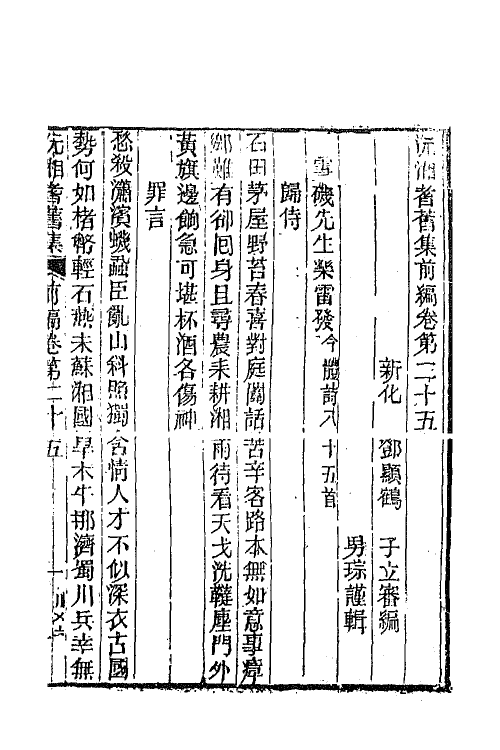 沅湘耆舊集前編卷第二十五
新化　鄧顯鶴　子立審編
男琮謹輯
雪磯先生樂雷發今體詩八十五首
歸侍
石田茅屋野苔春喜對庭闈話苦辛客路本無如意事瘴
鄉難有卻回身且尋農耒耕湘雨待看天戈洗韃塵門外
黃旗邊餉急可堪杯酒各傷神
罪言
愁殺瀟濱蟣蝨臣亂山科照獨含情人才不似深衣古國
勢何如楮幣輕石燕未蘇湘國旱木牛那濟蜀川兵幸無
沅湘耆舊集　前編卷第二十五　一